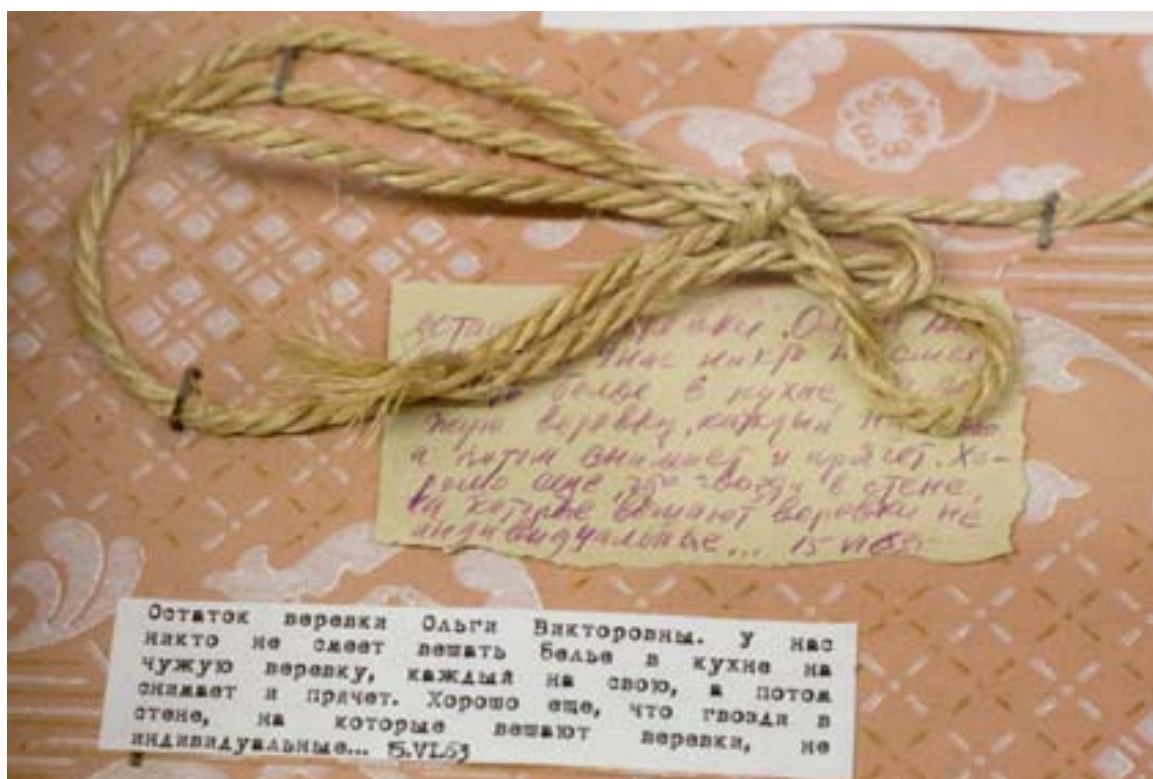 остаток веревки Ольги
у нас никто не смеет
белье в кухне
чужую веревку, каждый
а потом снимает и прячет. Хо-
рошо еще, что гвозди в стене,
на которые вешают веревки не
индивидуальные... 15 VI 63
Остаток веревки Ольги Викторовны. У нас
никто не смеет вешать белье в кухне на
чужую веревку, каждый на свою, а потом
снимает и прячет. Хорошо еще, что гвозди в
стене, на которые вешают веревки, не
индивидуальные... 15.VI.63